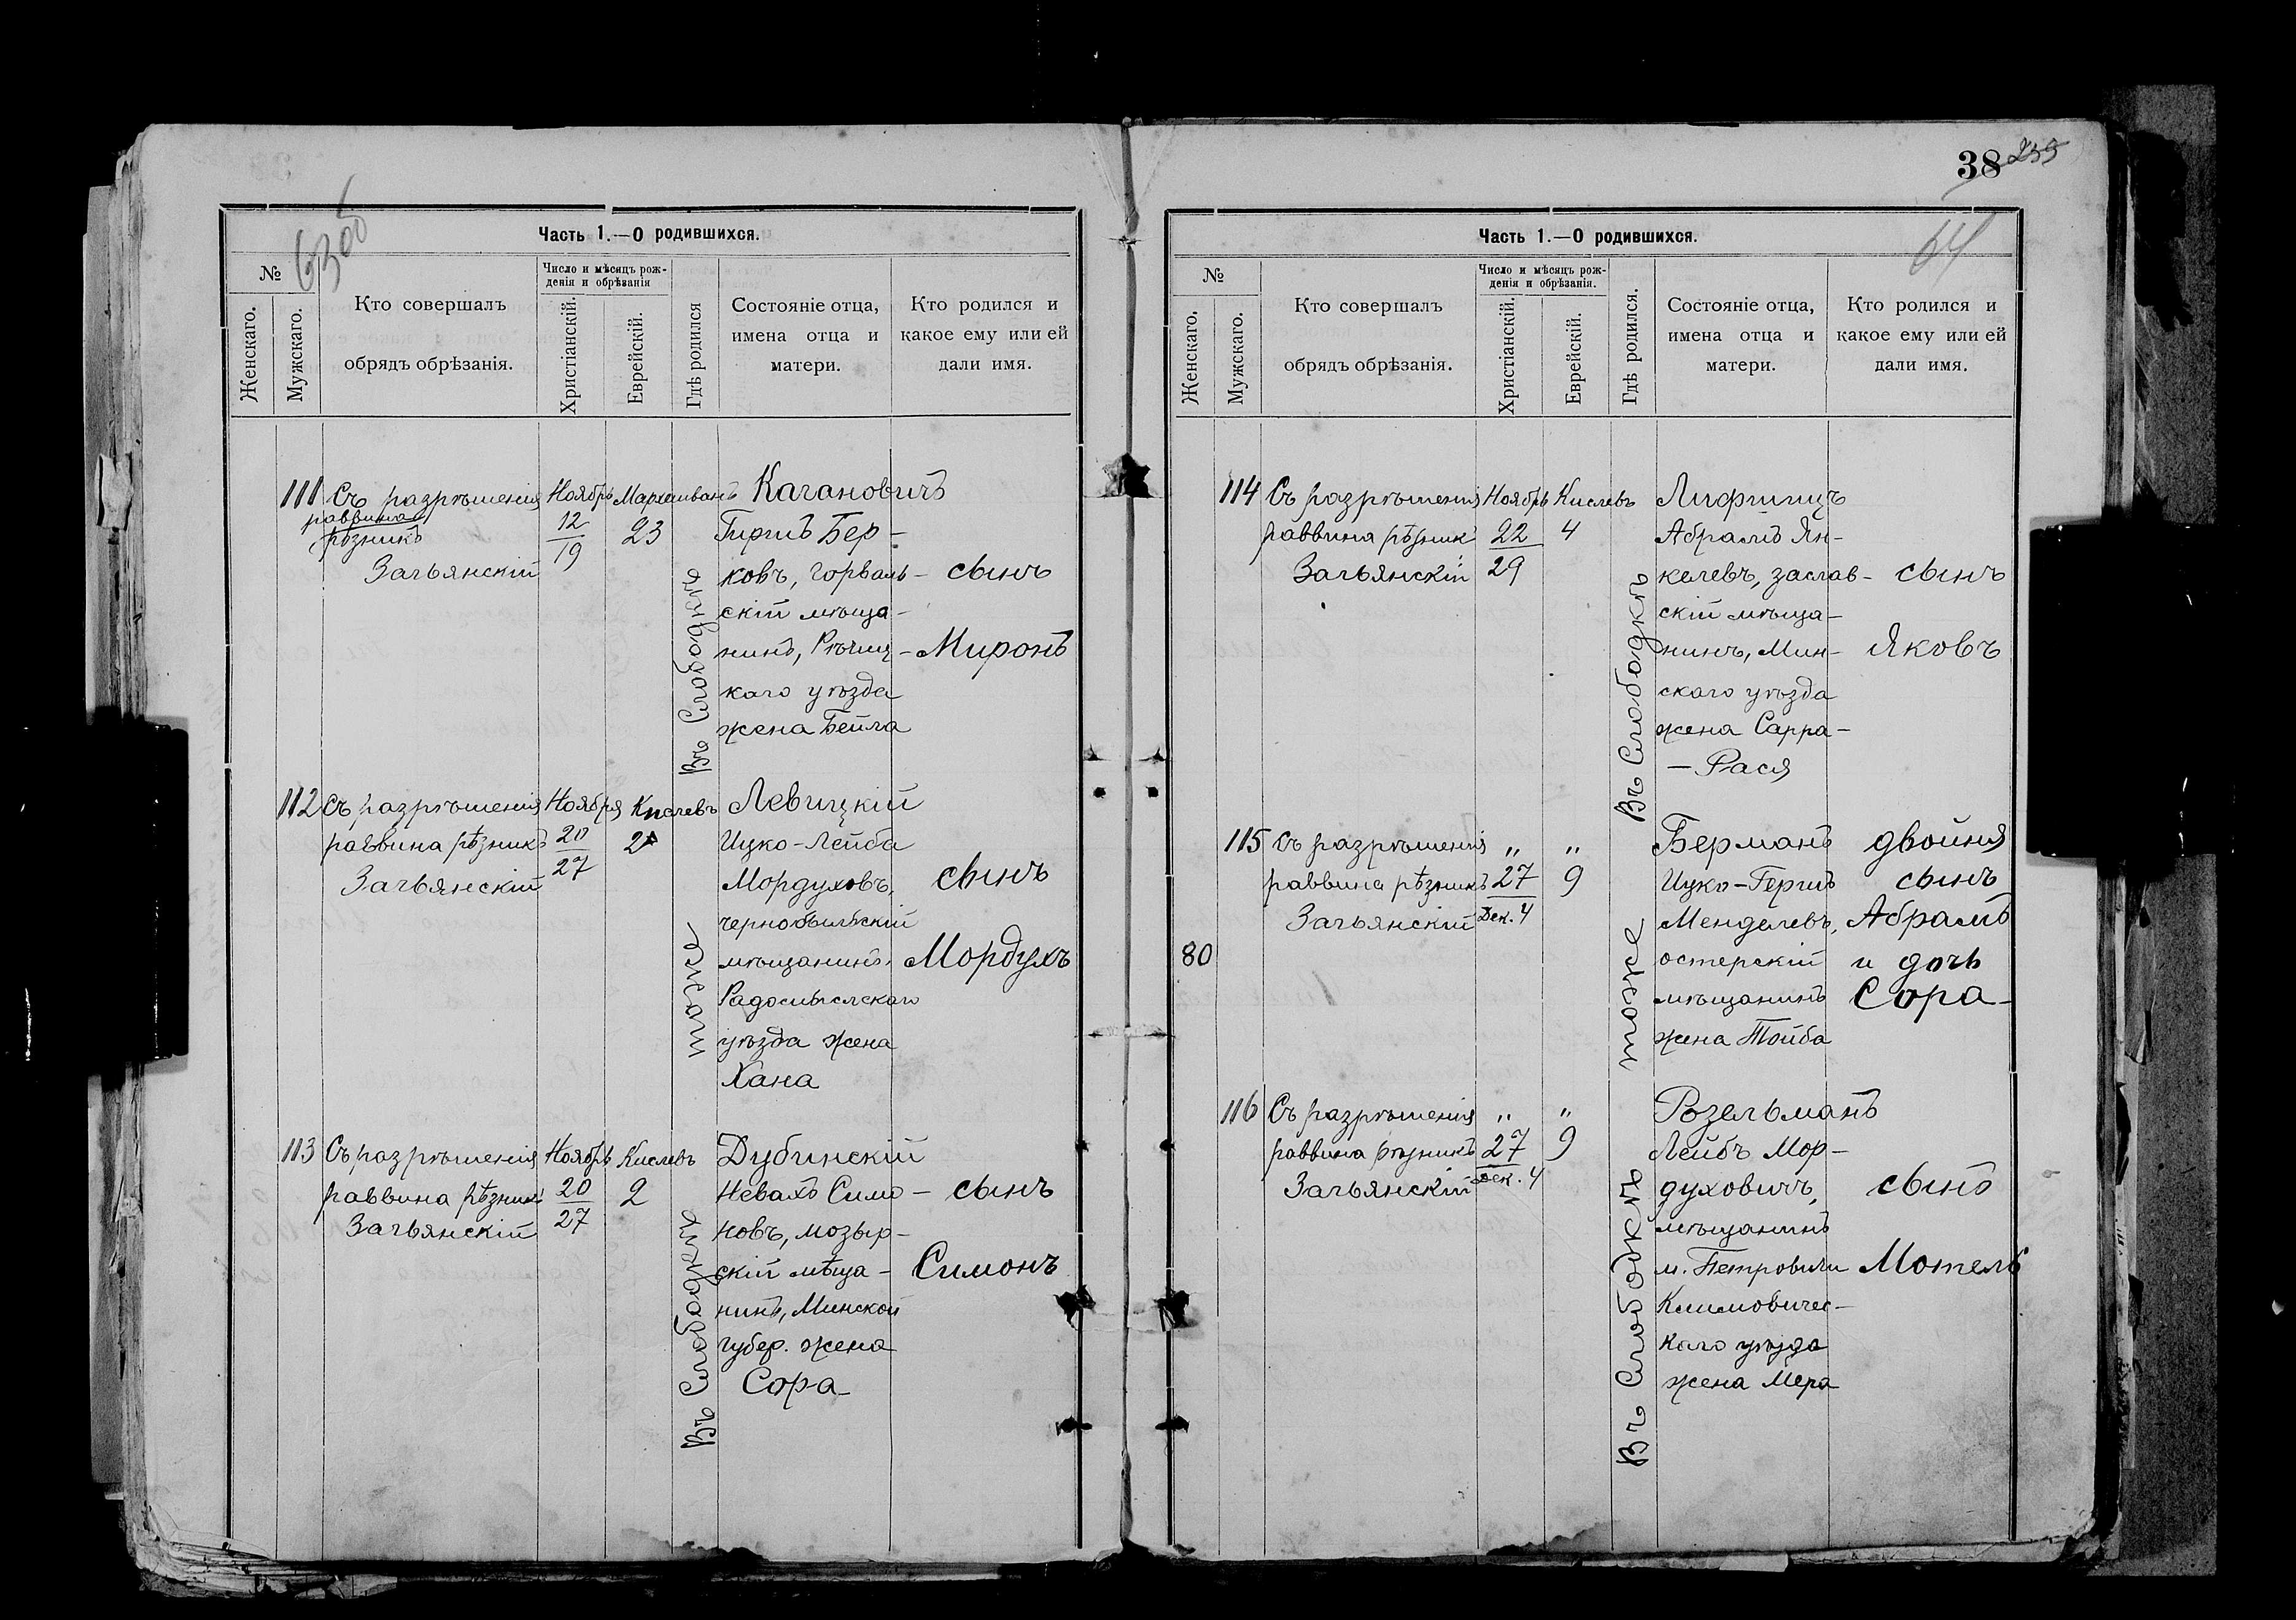 Часть 1.—О родившихся.
№
Женскаго.
Мужскаго.
Кто совершалъ
обрядъ обрѣзанія.
Число и мѣсяцъ рож-
денія и обрѣзанія
Христіанскій.
Еврейскій.
Гдѣ родился
Состояніе отца,
имена отца и
матери.
Кто родился и
какое ему или ей
дали имя.
111 Съ разрѣшенія Ноябрь Мархешванъ Кагановичъ
раввина 12 23 Гиршъ Бер-
рѣзникъ 19
Загьянскій ковъ, горваль- сынъ
скій мѣща-
нинъ, Рѣчиц- Миронъ
каго уѣзда
жена Бейла
Въ Слободкѣ
112 Съ разрѣшенія Ноября Кислевъ Левицкій
раввина рѣзникъ 20 2 Ицко-Лейба
Загьянскій 27 Мордуховъ, сынъ
чернобыльскій
мѣщанинъ, Мордухъ
Радомысльскаго
уѣзда жена
Хана
тоже
113 Съ разрѣшенія Ноябрь Кислевъ Дубинскій
раввина рѣзникъ 20 2 Невахъ Симо- сынъ
Загьянскій 27 новъ, мозыр-
скій мѣща- Симонъ
нинъ, Минской
губер. жена
Сора
Въ Слободкѣ
38
64
Часть 1.—О родившихся.
№
Женскаго.
Мужскаго.
Кто совершалъ
обрядъ обрѣзанія.
Число и мѣсяцъ рож-
денія и обрѣзанія.
Христіанскій.
Еврейскій.
Гдѣ родился.
Состояніе отца,
имена отца и
матери.
Кто родился и
какое ему или ей
дали имя.
114 Съ разрѣшенія Ноябрь Кислевъ Лифшицъ
раввина рѣзникъ 22 4 Абрамъ Ян-
Загьянскій 29 келевъ, заслав- сынъ
скій мѣща-
нинъ, Мин- Яковъ
скаго уѣзда
жена Сарра-
-Рася
Въ Слободкѣ
115 Съ разрѣшенія „ „ Берманъ двойня
раввина рѣзникъ 27 9 Ицко-Гершъ сынъ
Загьянскій Дек. 4 Менделевъ, Абрамъ
80 остерскій и дочь
мѣщанинъ Сора
жена Тойба
тоже
116 Съ разрѣшенія „ „ Розельманъ
раввина рѣзникъ 27 9 Лейбъ Мор-
Загьянскій Дек. 4 духовичъ, сынъ
мѣщанинъ
м. Петровичи Мотель
Климовичес-
каго уѣзда
жена Мера
Въ Слободкѣ